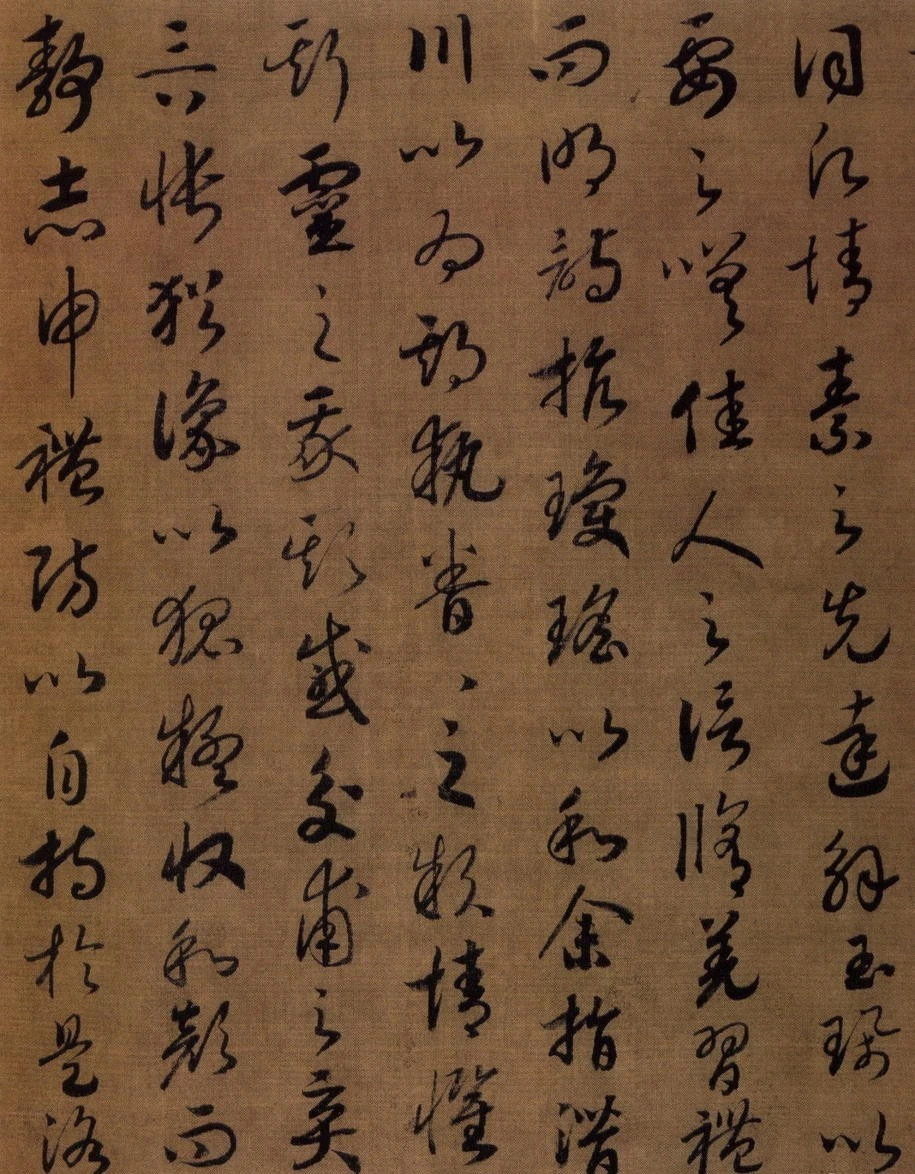 情素之先達解玉珮以
要之嗟佳人之信脩羌習禮
而明詩抗瓊瑤以和余指潛
川以為期執眷〻之款情懼
斯靈之我欺感交甫之棄
言悵猶豫以狐疑收和顏而
靜志申禮防以自持於是洛